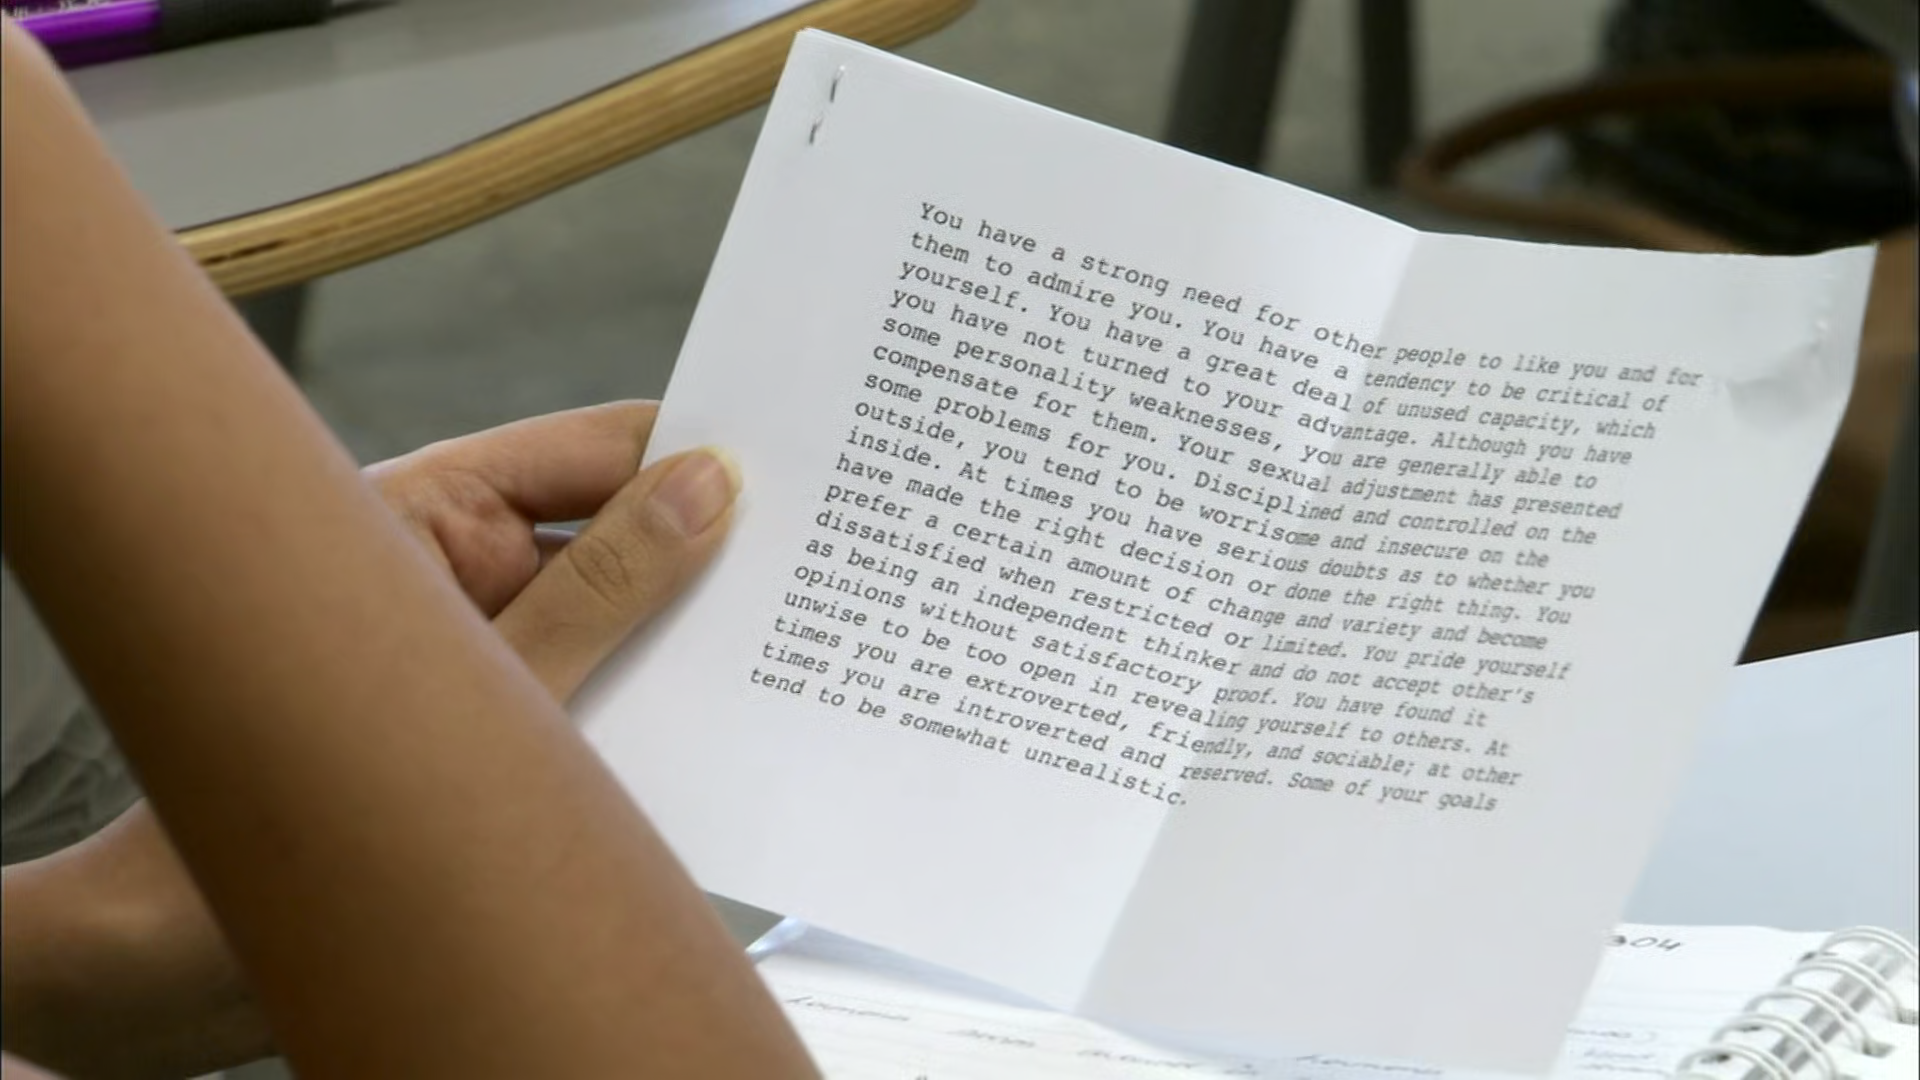 You have a strong need for other people to like you and for
them to admire you. You have a tendency to be critical of
yourself. You have a great deal of unused capacity, which
you have not turned to your advantage. Although you have
some personality weaknesses, you are generally able to
compensate for them. Your sexual adjustment has presented
some problems for you. Disciplined and controlled on the
outside, you tend to be worrisome and insecure on the
inside. At times you have serious doubts as to whether you
have made the right decision or done the right thing. You
prefer a certain amount of change and variety and become
dissatisfied when restricted or limited. You pride yourself
as being an independent thinker and do not accept other's
opinions without satisfactory proof. You have found it
unwise to be too open in revealing yourself to others. At
times you are extroverted, friendly, and sociable; at other
times you are introverted and reserved. Some of your goals
tend to be somewhat unrealistic.
304